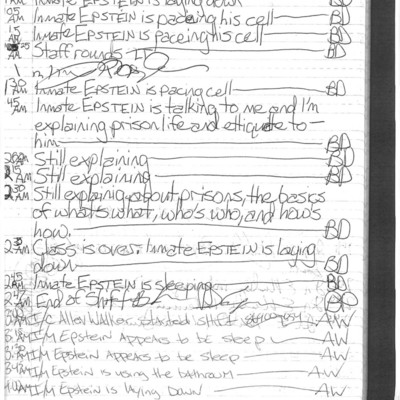 AM Inmate EPSTEIN is laying down BD
05 AM Inmate EPSTEIN is pacing his cell BD
15 AM Inmate EPSTEIN is paceing his cell BD
AM Staff rounds
1 30 AM Inmate EPSTEIN is pacing cell BD
45 AM Inmate EPSTEIN is talking to me and I'm
explaining prison life and ettiquite to
him BD
200 AM Still explaining BD
2 15 AM Still explaining BD
2 30 AM Still explaining about prisons, the basics
of what's what, who's who, and how's
how. BD
2 3 AM Class is over. Inmate EPSTEIN is laying
down BD
2 45 AM Inmate EPSTEIN is sleeping BD
2 47 AM End of Shift BD
3:00 AM I/C Allen Walker started shift AW
3:15 AM I/M Epstein Appears to be sleep AW
3:30 AM I/M Epstein Appears to be sleep AW
3:47 AM I/M Epstein is using the bathroom AW
4:00 AM I/M Epstein is laying Down AW